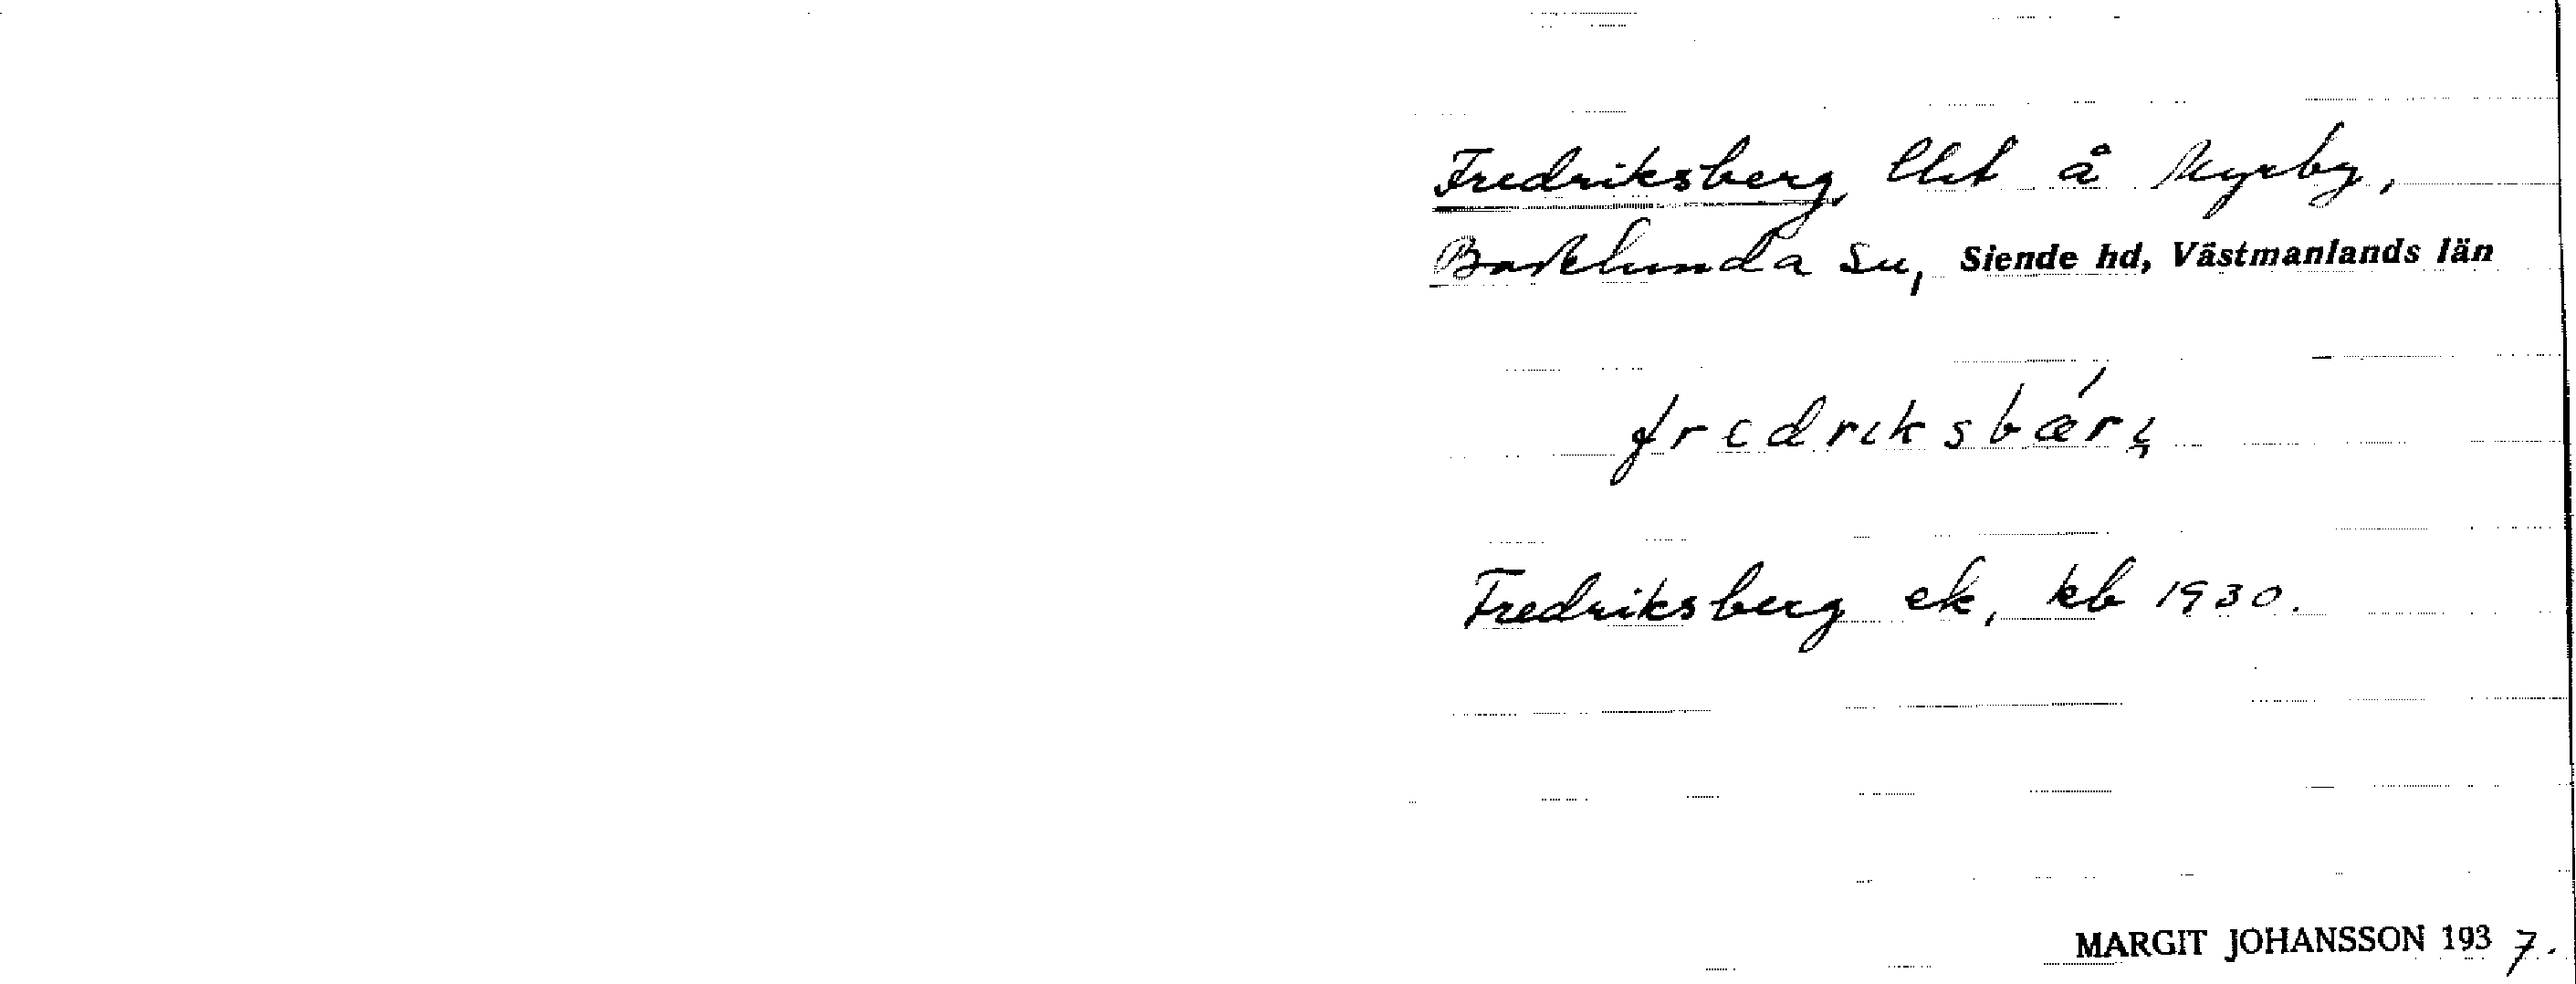 Fredriksberg, lht å Myrby,
Badelunda sn, Siende hd, Västmanlands län
fredriksbærg
Fredriksberg ek, kb 1930.
MARGIT JOHANSSON 1937.